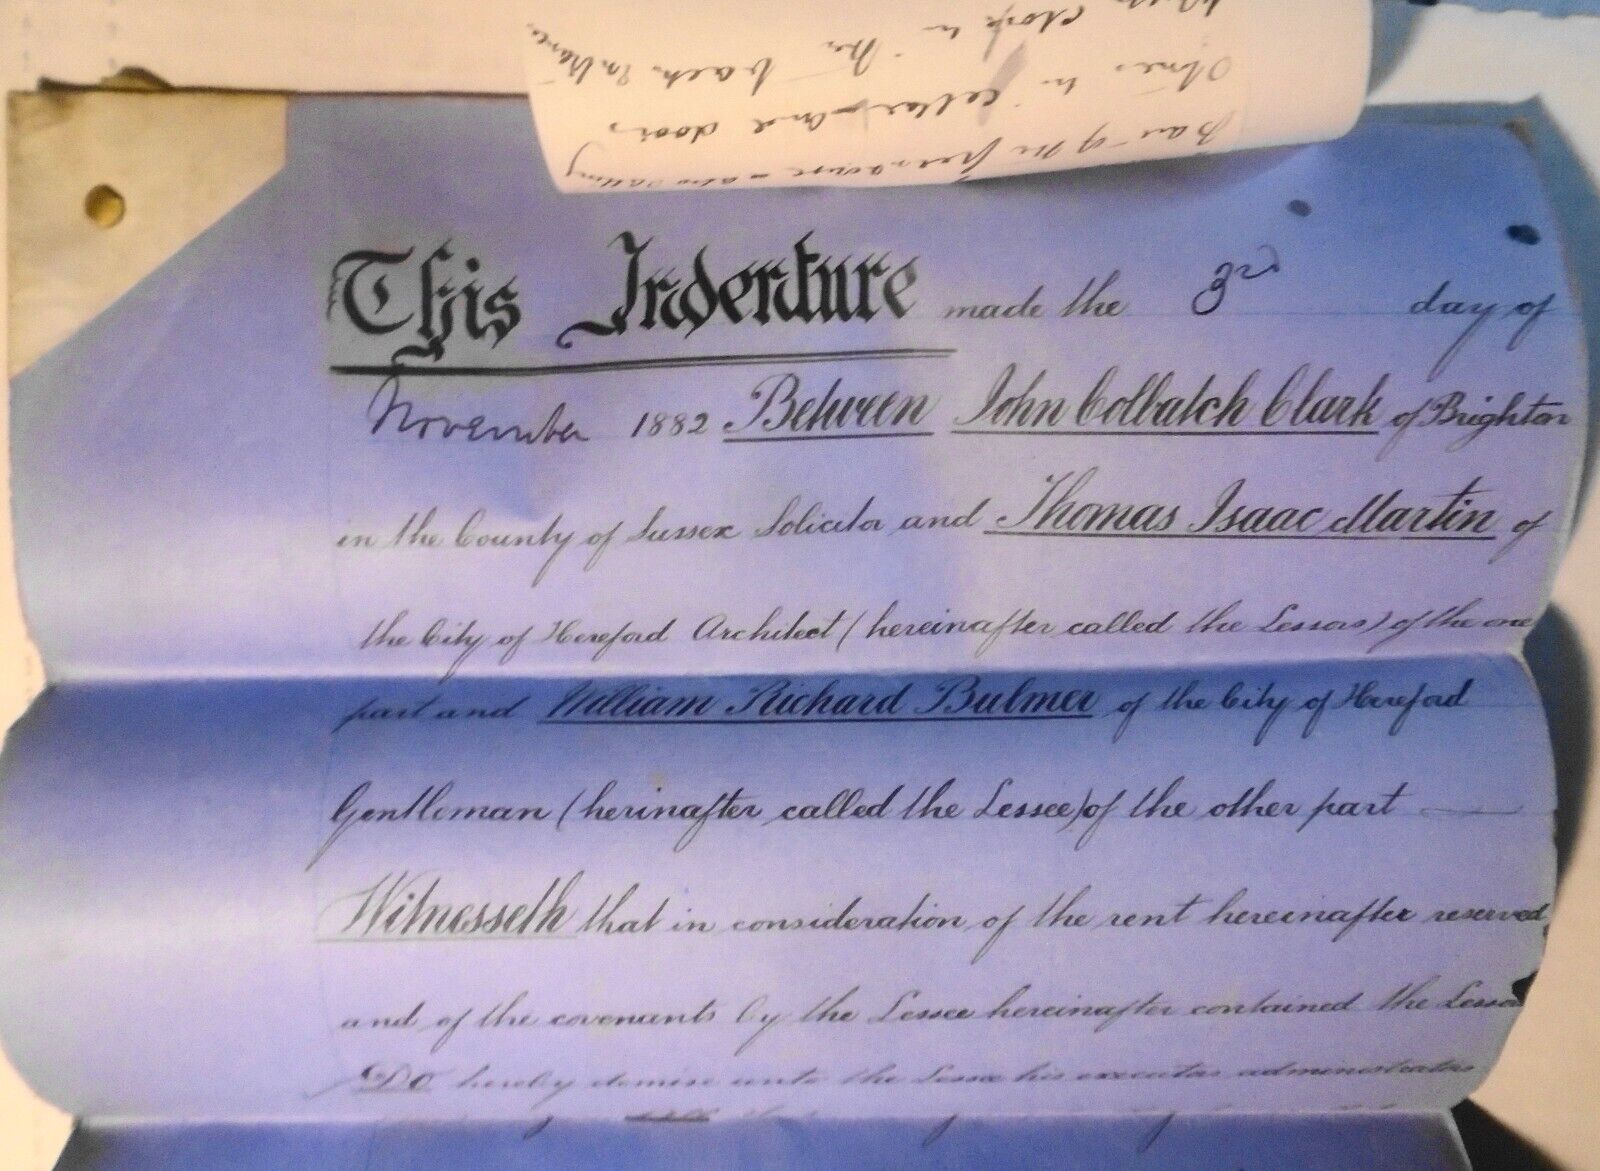 This Indenture made the 3rd day of
November 1882 Between John Colbatch Clark of Brighton
in the County of Sussex Solicitor and Thomas Isaac Martin of
the City of Hereford Architect (hereinafter called the Lessors) of the one
part and William Richard Bulmer of the City of Hereford
Gentleman (herinafter called the Lessee) of the other part
Witnesseth that in consideration of the rent hereinafter reserved
and of the covenants by the Lessee hereinafter contained the Lessors
Do hereby demise unto the Lessee his executors administrators
Bar of the
in cellar and doors
close to the back entrance